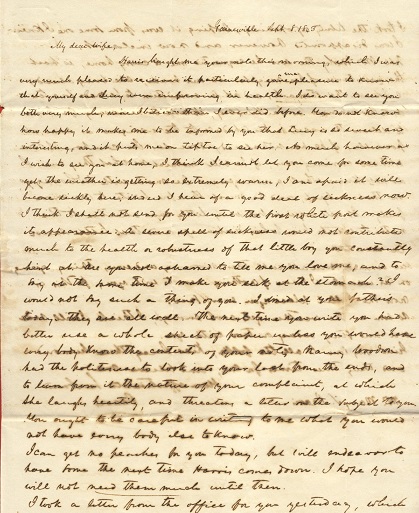 Sept. 8. 1845
My dear wife,
brought me your note this morning, which I was
very much pleased to receive it, particularly, gave me pleasure to know
that yourself and Lucy were improving in health. I do want to see you
both very much, more I believe than I ever did before. You do not know
how happy it makes me to be informed by you that Lucy is so sweet and
interesting, and it puts me on tiptoe to see her. As much however as
I wish to see you at home, I think I cannot let you come for some time
yet. the weather is getting so extremely warm, I am afraid it will
become sickly here, indeed I hear of a good deal of sickness now.
I think I shall not send for you until the first white frost makes
its appearance. A severe spell of sickness would not contribute
much to the health or robustness of that little boy you constantly
hint at. Are you not ashamed to tell me you love me, and to
say at the same time I make you sick at the stomach. I
would not say such a thing of you. I dined at your father's
today, they are all well. The next time you write you had
better use a whole sheet of paper unless you would have
every body know the contents of your note. Nancy Woodson
had the politeness to look into your last from the ends, and
to learn from it the nature of your complaint, at which
she laughs heartily, and threatens a letter on the subject to you.
You ought to be careful in writing to me what you would
not have every body else to know.
I can get no peaches for you today, but will endeavor to
have some the next time Harris comes down. I hope you
will not need them much until then.
I took a letter from the office for you yesterday, which